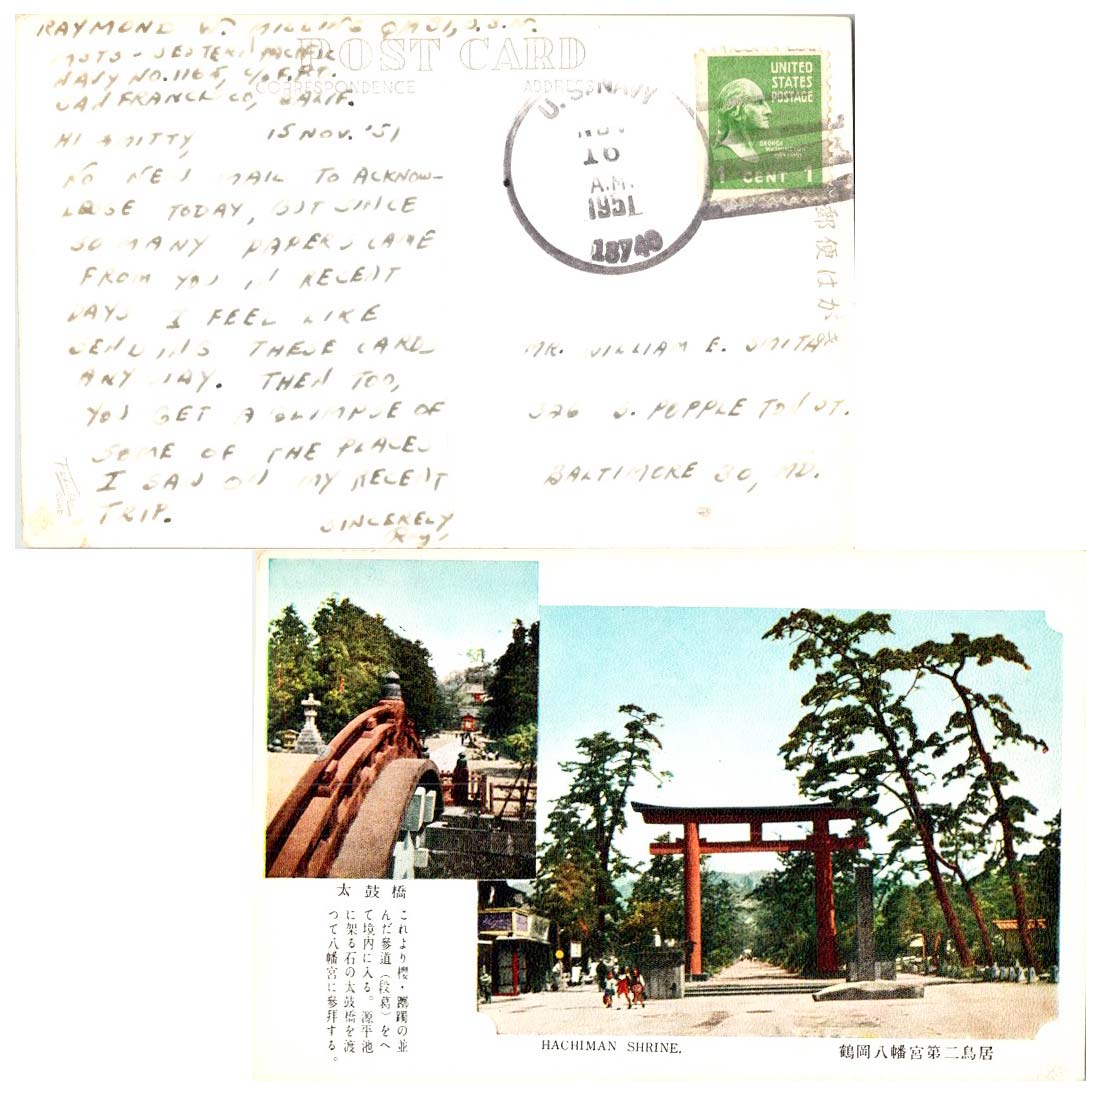 POST CARD
CORRESPONDENCE ADDRESS
RAYMOND W. MILLING QMC1, U.S.N.
MSTS - WESTERN PACIFIC
NAVY NO. 1165, % F.P.O.
SAN FRANCISCO, CALIF.
HI SMITTY, 15 NOV. '51
NO NEW MAIL TO ACKNOW-
LEDGE TODAY, BUT SINCE
SO MANY PAPERS CAME
FROM YOU IN RECENT
DAYS I FEEL LIKE
SENDING THESE CARDS
ANYWAY. THEN TOO,
YOU GET A GLIMPSE OF
SOME OF THE PLACES
I SAW ON MY RECENT
TRIP.
SINCERELY
Ray
U. S. NAVY
NOV
16
A.M.
1951
18740
UNITED
STATES
POSTAGE
GEORGE
WASHINGTON
1 CENT 1
郵便はがき
MR. WILLIAM E. SMITH
326 S. POPPLETON ST.
BALTIMORE 30, MD.
太鼓橋
これより櫻・躑躅の並
んだ參道(段葛)をへ
て境内に入る。源平池
に架る石の太鼓橋を渡
つて八幡宮に參拜する。
HACHIMAN SHRINE.
鶴岡八幡宮第二鳥居